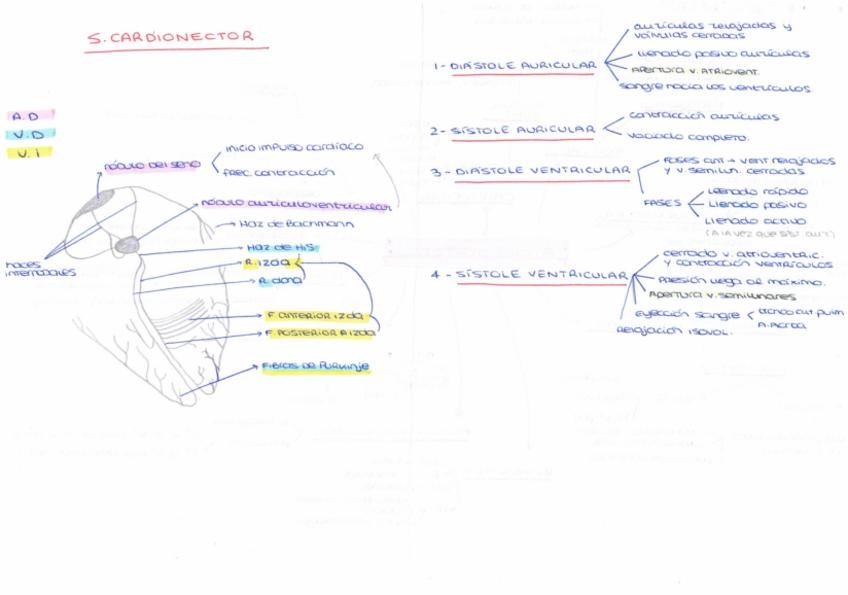 S. CARDIONECTOR
A.D
V.D
V.I
NÓDULO DEL SENO
inicio impulso cardíaco
Frec. contracción
nódulo auriculoventricular
Haz de Bachmann
Haces
internodales
Haz de His
R. IZDA
R. dcha
F. ANTERIOR IZDA
F. POSTERIOR R IZDA
FIBRAS DE PURKINJE
1 - DIÁSTOLE AURICULAR
aurículas relajadas y
válvulas cerradas
llenado pasivo aurículas
APERTURA V. ATRIOVENT.
sangre hacia los ventrículos
2 - SÍSTOLE AURICULAR
contracción aurículas
vaciado completo.
3 - DIÁSTOLE VENTRICULAR
Fases ant → vent relajados
y v. semilun. cerradas
FASES
llenado rápido
llenado pasivo
llenado activo
(A la vez que síst. aur.)
4 - SÍSTOLE VENTRICULAR
cerrado v. atrioventric.
y contracción ventrículos
presión llega al máximo.
Apertura v. semilunares
eyección sangre
tronco art pulm
A. Aorta
Relajación isovol.